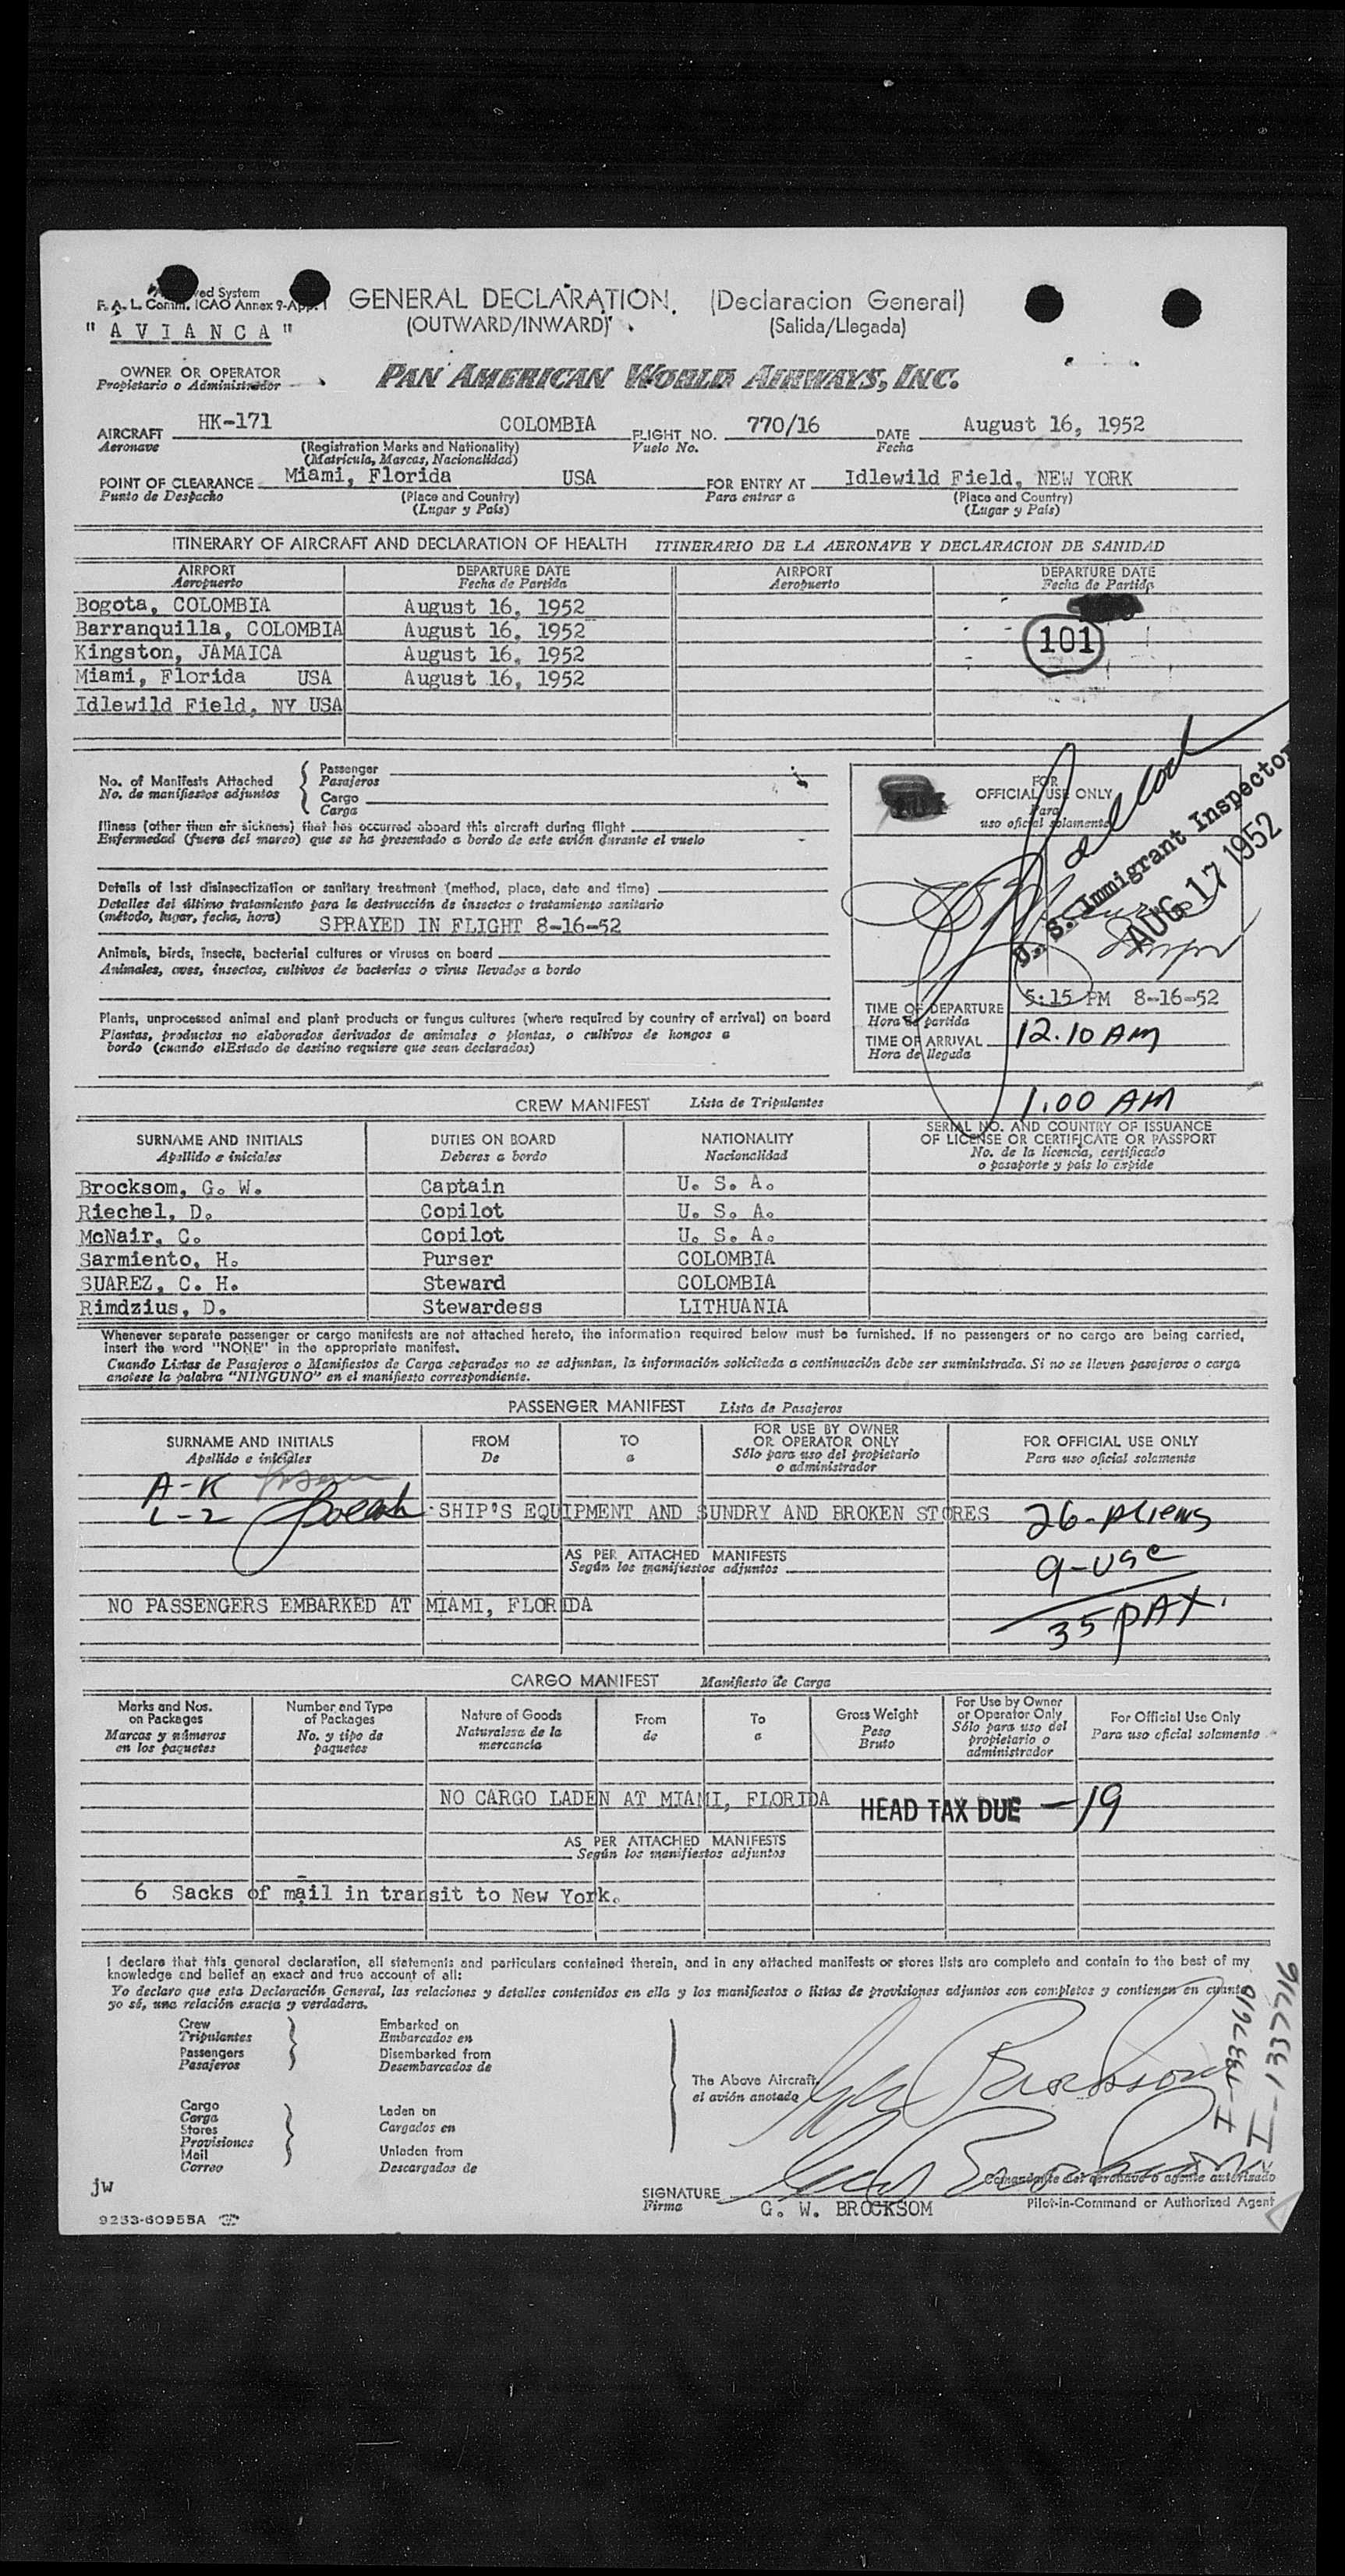 ved System
F. A. L. Comm. ICAO Annex 9-App. 1
GENERAL DECLARATION. (Declaracion General)
(OUTWARD/INWARD) (Salida/Llegada)
" A V I A N C A "
OWNER OR OPERATOR
Propietario o Administrador
PAN AMERICAN WORLD AIRWAYS, INC.
AIRCRAFT HK-171 COLOMBIA FLIGHT NO. 770/16 DATE August 16, 1952
Aeronave (Registration Marks and Nationality) Vuelo No. Fecha
(Matricula, Marcas, Nacionalidad)
POINT OF CLEARANCE Miami, Florida USA FOR ENTRY AT Idlewild Field, NEW YORK
Punto de Despacho (Place and Country) Para entrar a (Place and Country)
(Lugar y País) (Lugar y País)
ITINERARY OF AIRCRAFT AND DECLARATION OF HEALTH ITINERARIO DE LA AERONAVE Y DECLARACION DE SANIDAD
AIRPORT DEPARTURE DATE AIRPORT DEPARTURE DATE
Aeropuerto Fecha de Partida Aeropuerto Fecha de Partida
Bogota, COLOMBIA August 16, 1952
Barranquilla, COLOMBIA August 16, 1952
101
Kingston, JAMAICA August 16, 1952
Miami, Florida USA August 16, 1952
Idlewild Field, NY USA
No. of Manifests Attached
No. de manifiestos adjuntos
Passenger
Pasajeros
Cargo
Carga
Illness (other than air sickness) that has occurred aboard this aircraft during flight
Enfermedad (fuera del mareo) que se ha presentado a bordo de este avión durante el vuelo
Details of last disinsectization or sanitary treatment (method, place, date and time)
Detalles del último tratamiento para la destrucción de insectos o tratamiento sanitario
(método, lugar, fecha, hora) SPRAYED IN FLIGHT 8-16-52
Animals, birds, insects, bacterial cultures or viruses on board
Animales, aves, insectos, cultivos de bacterias o virus llevados a bordo
Plants, unprocessed animal and plant products or fungus cultures (where required by country of arrival) on board
Plantas, productos no elaborados derivados de animales o plantas, o cultivos de hongos a
bordo (cuando elEstado de destino requiere que sean declarados)
FOR
OFFICIAL USE ONLY
Para
uso oficial solamente
U. S. Immigrant Inspector
AUG 17 1952
TIME OF DEPARTURE 5:15 PM 8-16-52
Hora de partida
TIME OF ARRIVAL 12.10 AM
Hora de llegada
1.00 AM
CREW MANIFEST Lista de Tripulantes
SURNAME AND INITIALS DUTIES ON BOARD NATIONALITY SERIAL NO. AND COUNTRY OF ISSUANCE
OF LICENSE OR CERTIFICATE OR PASSPORT
Apellido e iniciales Deberes a bordo Nacionalidad No. de la licencia, certificado
o pasaporte y pais lo expide
Brocksom, G. W. Captain U. S. A.
Riechel, D. Copilot U. S. A.
McNair, C. Copilot U. S. A.
Sarmiento, H. Purser COLOMBIA
SUAREZ, C. H. Steward COLOMBIA
Rimdzius, D. Stewardess LITHUANIA
Whenever separate passenger or cargo manifests are not attached hereto, the information required below must be furnished. If no passengers or no cargo are being carried,
insert the word "NONE" in the appropriate manifest.
Cuando Listas de Pasajeros o Manifiestos de Carga separados no se adjuntan, la información solicitada a continuación debe ser suministrada. Si no se lleven pasajeros o carga
anotese la palabra "NINGUNO" en el manifiesto correspondiente.
PASSENGER MANIFEST Lista de Pasajeros
SURNAME AND INITIALS FROM TO FOR USE BY OWNER OR OPERATOR ONLY FOR OFFICIAL USE ONLY
Apellido e iniciales De a Sólo para uso del propietario o administrador Para uso oficial solamente
A-K
L-Z SHIP'S EQUIPMENT AND SUNDRY AND BROKEN STORES 26-Aliens
AS PER ATTACHED MANIFESTS 9-USC
Según los manifiestos adjuntos
NO PASSENGERS EMBARKED AT MIAMI, FLORIDA 35 PAX.
CARGO MANIFEST Manifiesto de Carga
Marks and Nos. on Packages Number and Type of Packages Nature of Goods From To Gross Weight For Use by Owner or Operator Only For Official Use Only
Marcas y números en los paquetes No. y tipo de paquetes Naturaleza de la mercancía de a Peso Bruto Sólo para uso del propietario o administrador Para uso oficial solamente
NO CARGO LADEN AT MIAMI, FLORIDA HEAD TAX DUE -19
AS PER ATTACHED MANIFESTS
Según los manifiestos adjuntos
6 Sacks of mail in transit to New York.
I declare that this general declaration, all statements and particulars contained therein, and in any attached manifests or stores lists are complete and contain to the best of my
knowledge and belief an exact and true account of all:
Yo declaro que esta Declaración General, las relaciones y detalles contenidos en ella y los manifiestos o listas de provisiones adjuntos son completos y contienen en cuanto
yo sé, una relación exacta y verdadera.
Crew Embarked on
Tripulantes Embarcados en
Passengers Disembarked from
Pasajeros Desembarcados de
The Above Aircraft
el avión anotado
Cargo Laden on
Carga Cargados en
Stores
Provisiones
Mail Unladen from
Correo Descargados de
I-1337716
Comandante del aeronave o agente autorizado
jw
SIGNATURE G. W. BROCKSOM Pilot-in-Command or Authorized Agent
Firma
9253-60955A